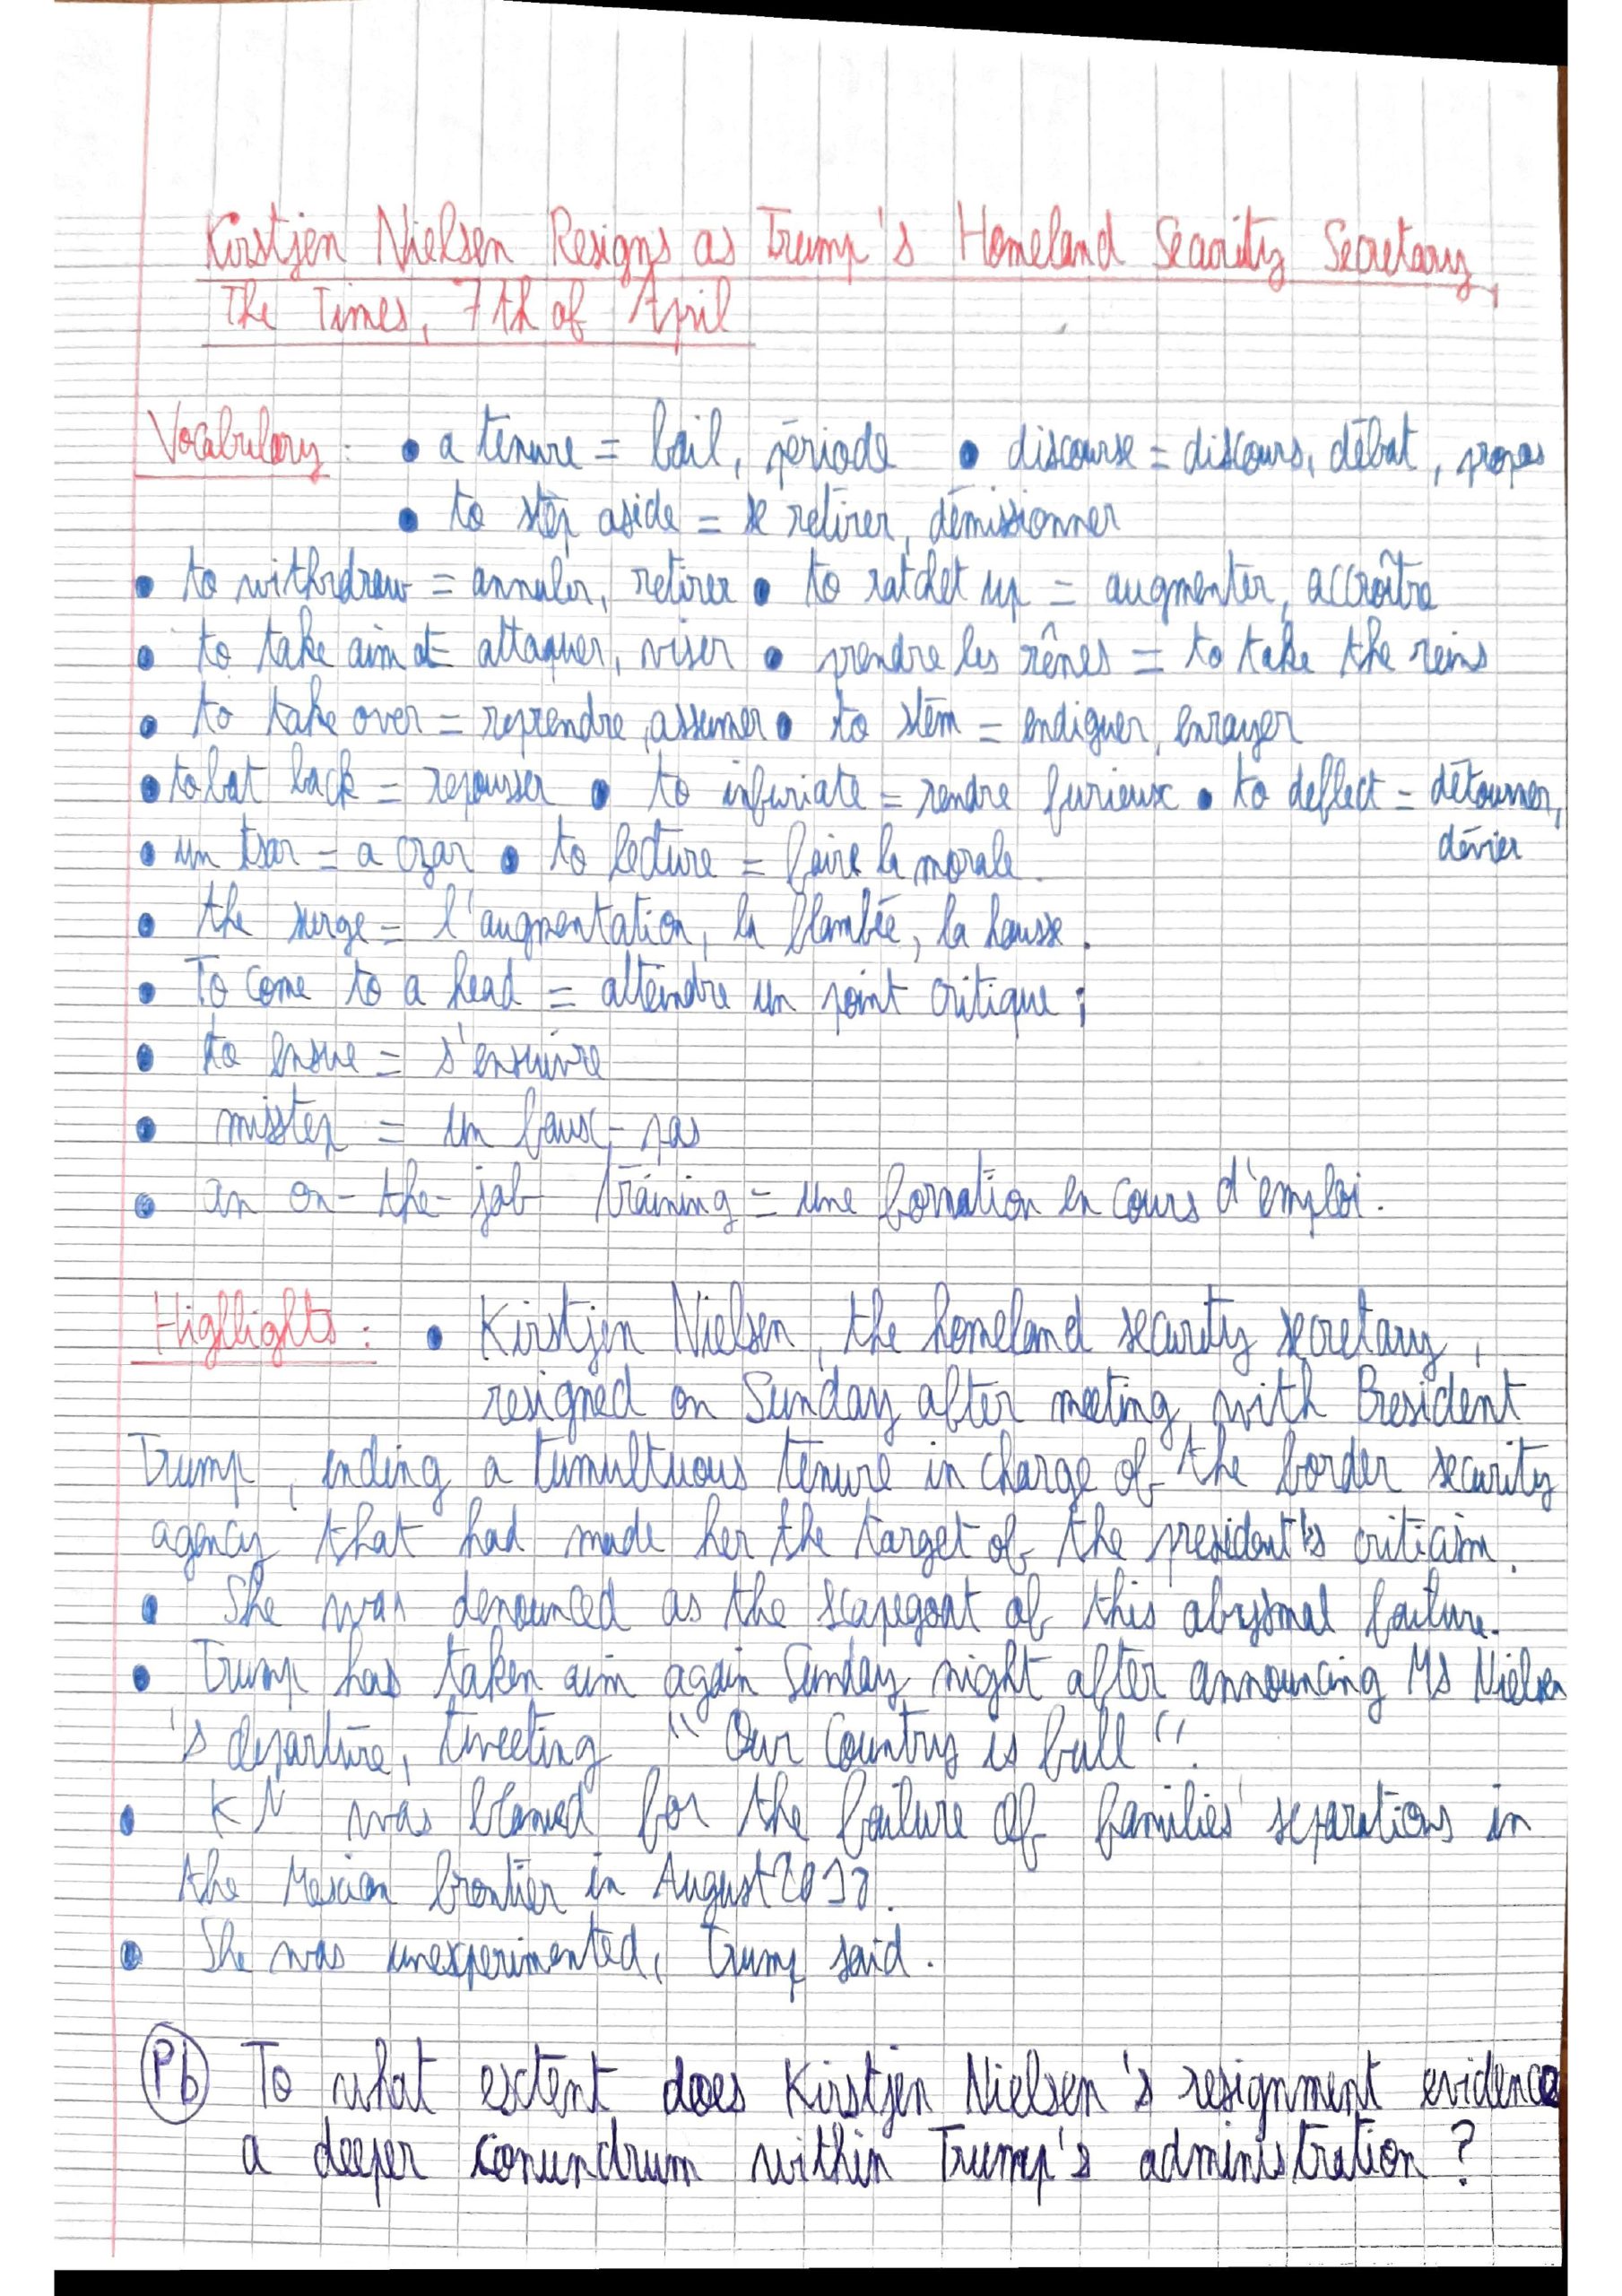 Kirstjen Nielsen Resigns as Trump's Homeland Security Secretary,
The Times, 7th of April
Vocabulary : • a tenure = bail, période • discourse = discours, débat, propos
• to step aside = se retirer, démissionner
• to withdraw = annuler, retirer • to ratchet up = augmenter, accroître
• to take aim at = attaquer, viser • prendre les rênes = to take the reins
• to take over = reprendre, assumer • to stem = endiguer, enrayer
• to bat back = repousser • to infuriate = rendre furieux • to deflect = détourner,
dévier
• un tsar = a czar • to lecture = faire la morale.
• the surge = l'augmentation, la flambée, la hausse.
• To come to a head = atteindre un point critique ;
• to ensue = s'ensuivre
• misstep = un faux-pas
• an on-the-job training = une formation en cours d'emploi.
Highlights : • Kirstjen Nielsen, the homeland security secretary,
resigned on Sunday after meeting with President
Trump, ending a tumultuous tenure in charge of the border security
agency that had made her the target of the president's criticism.
• She was denounced as the scapegoat of this abysmal failure.
• Trump has taken aim again Sunday night after announcing Ms Nielsen
's departure, tweeting "Our Country is full".
• KN was blamed for the failure of families' separations in
the Mexican frontier in August 2018.
• She was unexperimented, Trump said.
Pb To what extent does Kirstjen Nielsen's resignment evidence
a deeper conundrum within Trump's administration ?